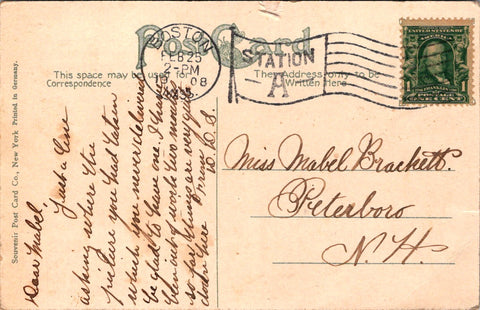 Post Card
BOSTON
FEB 25
2-PM
08
MASS.
STATION
A
This space may be used for
Correspondence
The Address only to be
Written Here
UNITED STATES OF AMERICA
1 ONE CENT 1
Souvenir Post Card Co., New York Printed in Germany.
Miss Mabel Brackett.
Peterboro
N. H.
Dear Mabel
Just a line
asking where the
picture you had taken
which you never delivered
be glad to have one. I have
been out of work two weeks
so far things are very
down here